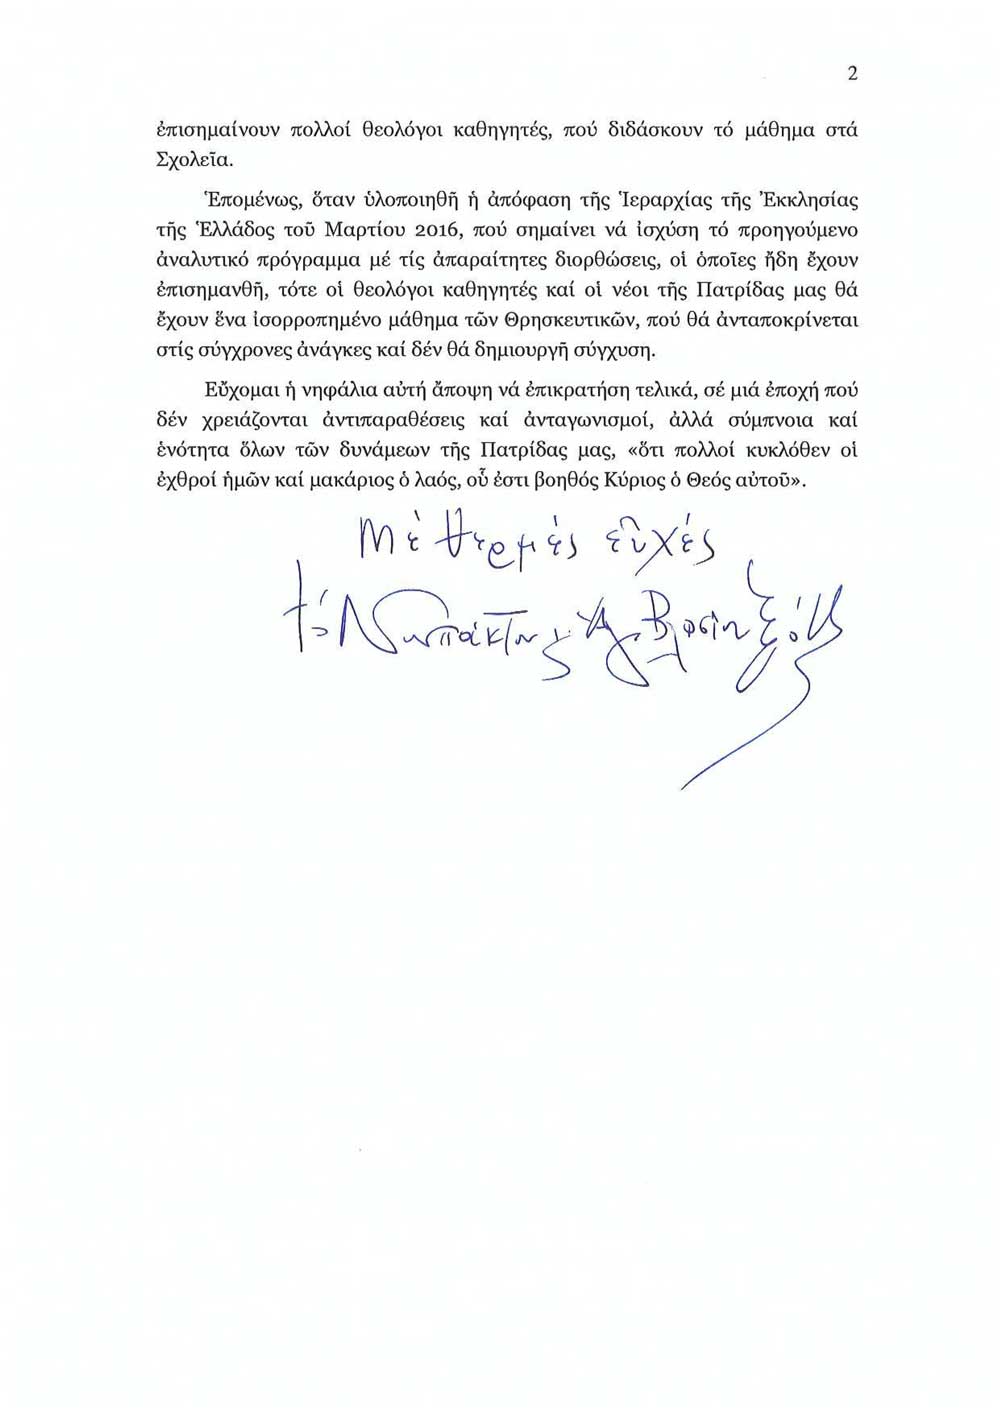 2
ἐπισημαίνουν πολλοί θεολόγοι καθηγητές, πού διδάσκουν τό μάθημα στά
Σχολεῖα.
Ἑπομένως, ὅταν ὑλοποιηθῆ ἡ ἀπόφαση τῆς Ἱεραρχίας τῆς Ἐκκλησίας
τῆς Ἑλλάδος τοῦ Μαρτίου 2016, πού σημαίνει νά ἰσχύση τό προηγούμενο
ἀναλυτικό πρόγραμμα μέ τίς ἀπαραίτητες διορθώσεις, οἱ ὁποῖες ἤδη ἔχουν
ἐπισημανθῆ, τότε οἱ θεολόγοι καθηγητές καί οἱ νέοι τῆς Πατρίδας μας θά
ἔχουν ἕνα ἰσορροπημένο μάθημα τῶν Θρησκευτικῶν, πού θά ἀνταποκρίνεται
στίς σύγχρονες ἀνάγκες καί δέν θά δημιουργῆ σύγχυση.
Εὔχομαι ἡ νηφάλια αὐτή ἄποψη νά ἐπικρατήση τελικά, σέ μιά ἐποχή πού
δέν χρειάζονται ἀντιπαραθέσεις καί ἀνταγωνισμοί, ἀλλά σύμπνοια καί
ἑνότητα ὅλων τῶν δυνάμεων τῆς Πατρίδας μας, «ὅτι πολλοί κυκλόθεν οἱ
ἐχθροί ἡμῶν καί μακάριος ὁ λαός, οὗ ἐστι βοηθός Κύριος ὁ Θεός αὐτοῦ».
Μέ θερμές εὐχές
Ναυπάκτου